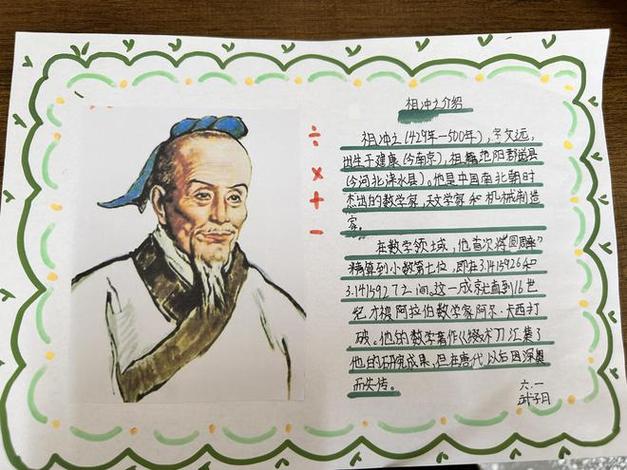 祖冲之介绍
÷
×
+
-
祖冲之(429年—500年),字文远,
出生于建康(今南京),祖籍范阳郡遒县
(今河北涞水县)。他是中国南北朝时
杰出的数学家,天文学家和机械制造
家。
在数学领域,他首次将"圆周率"
精算到小数第七位,即在3.1415926和
3.1415927之间。这一成就直到16世
纪才被阿拉伯数学家阿尔·卡西打
破。他的数学著作《缀术》汇集了
他的研究成果,但在唐代以后因深奥
而失传。
六.一